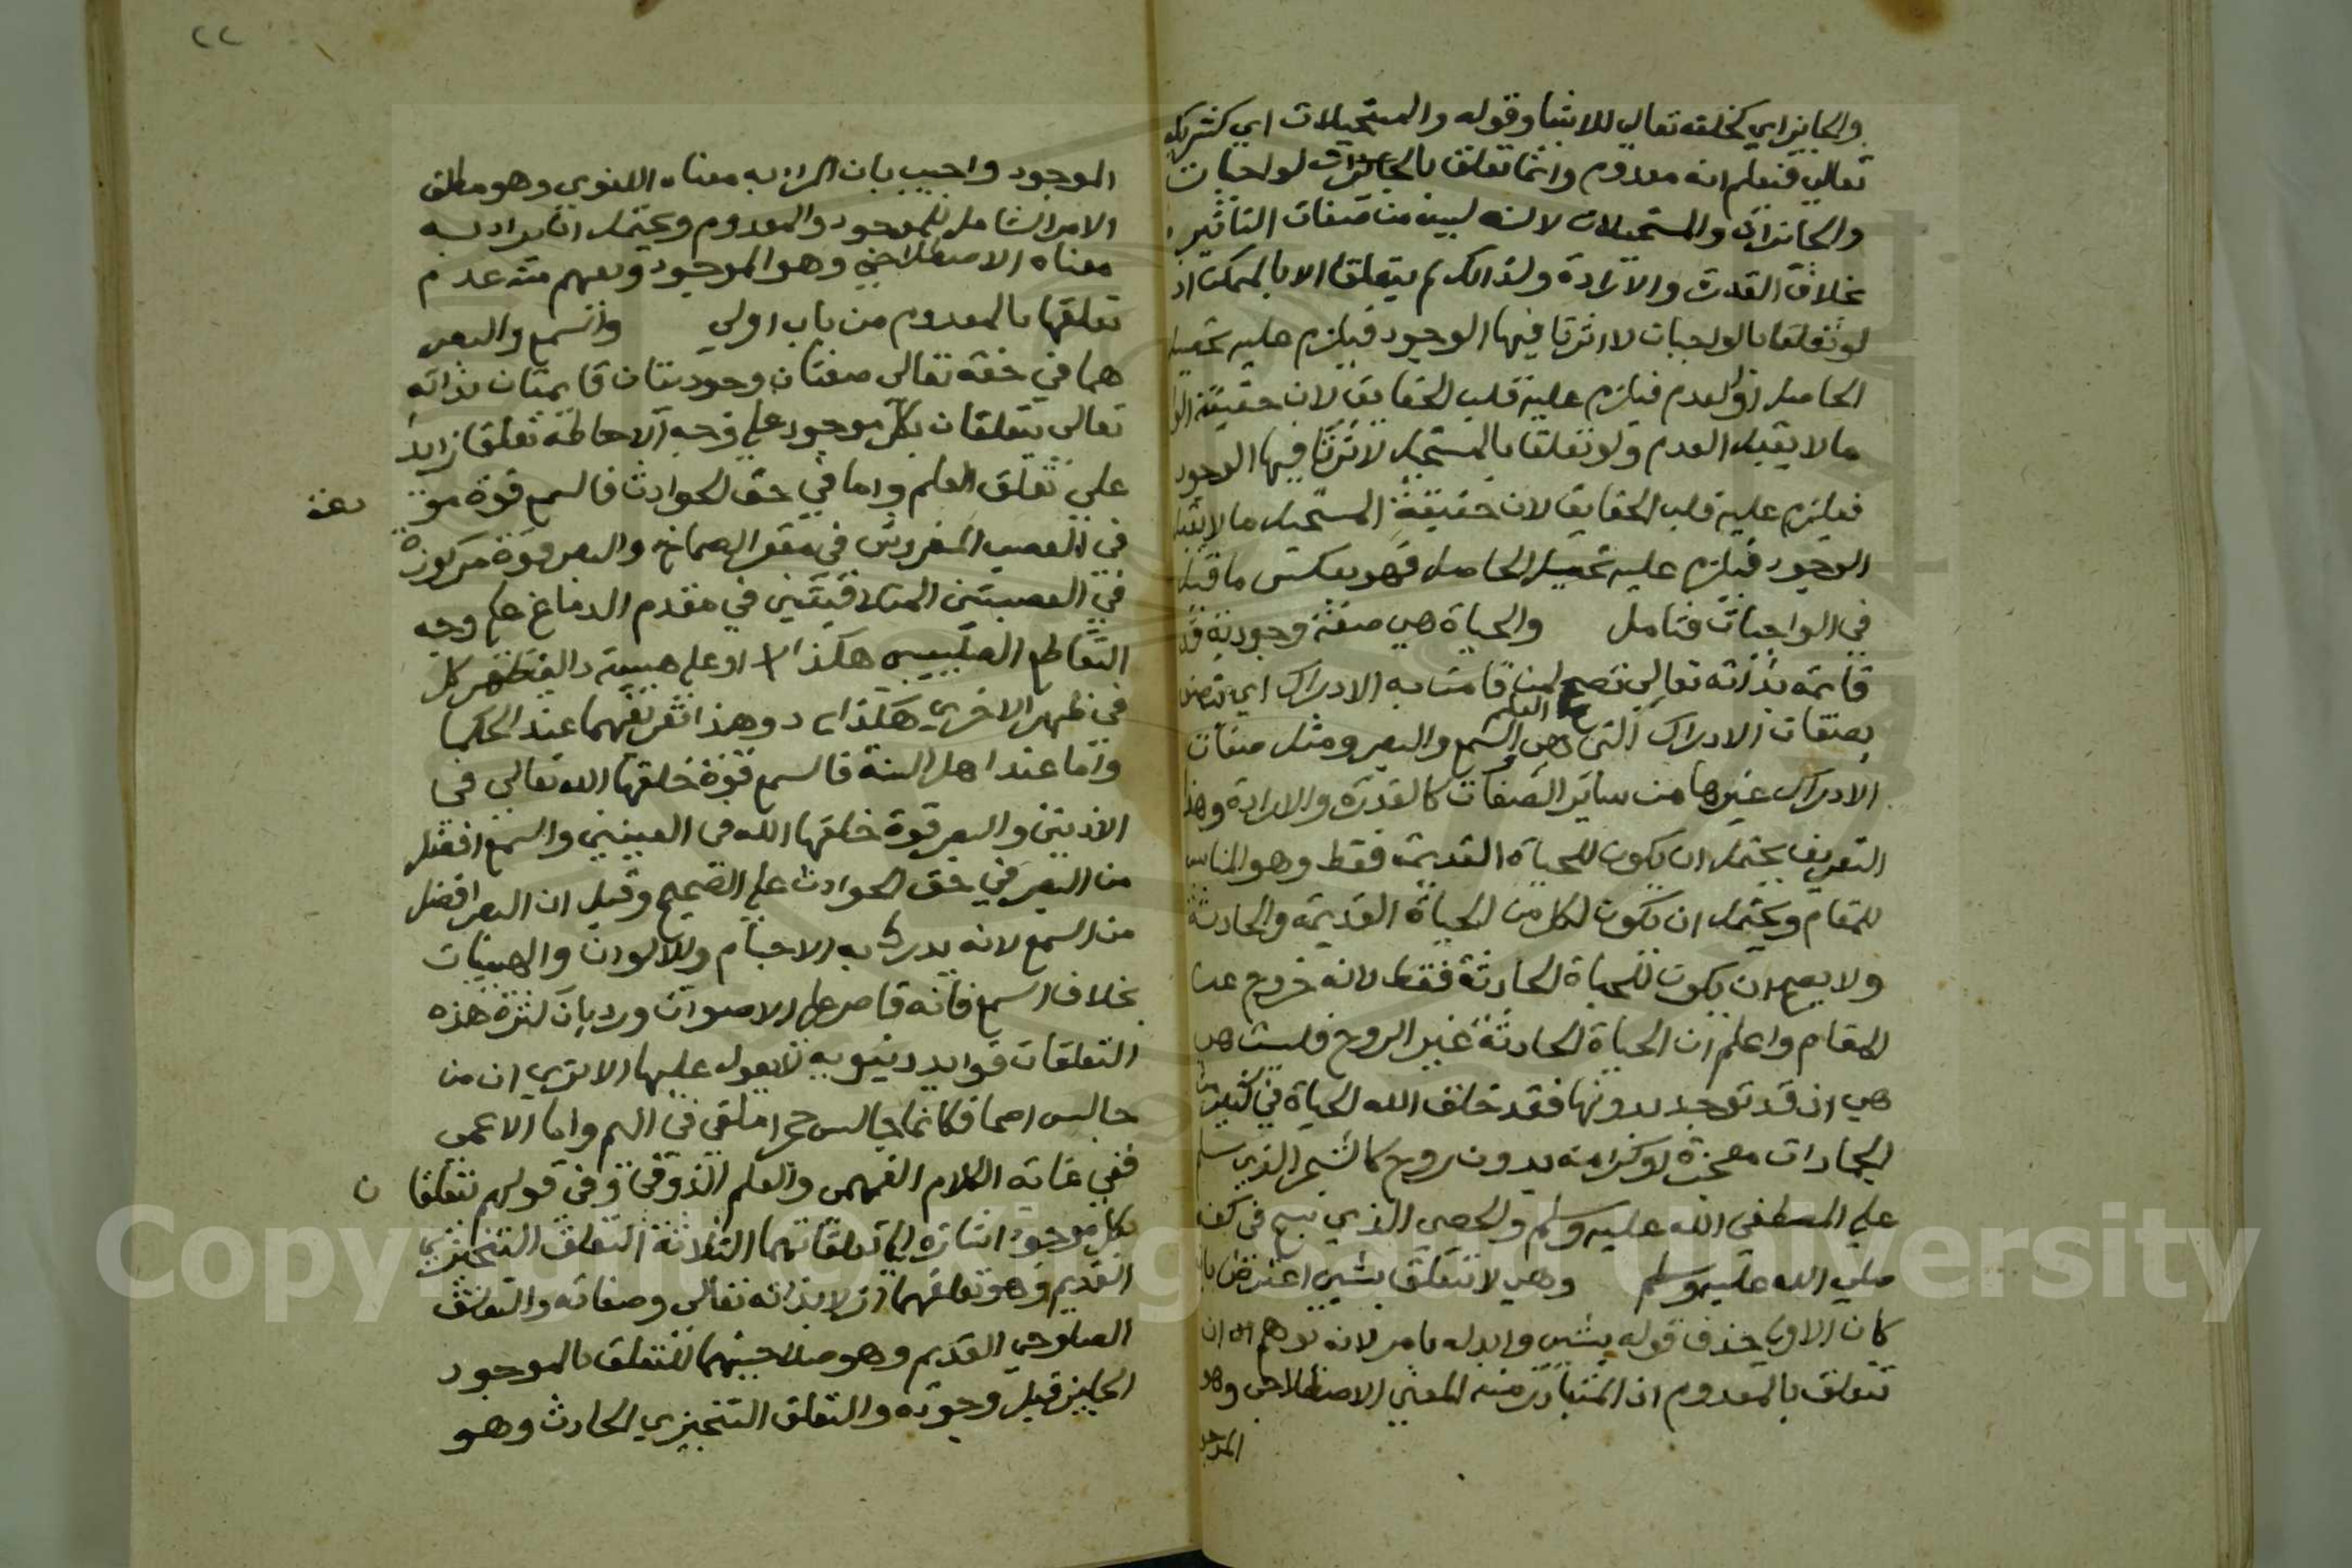 والجايز اي كخلقه تعالي للاشيا وقوله والمستحيلات اي كشريك
تعالي فيعلم انه معدوم وانما تعلق بالجايزات لواجبات
والجايزات والمستحيلات لانه ليس من صفات التاثير
بخلاف القدرة والارادة ولذالك لم يتعلقا الا بالممكن اذ
لو تعلقا بالواجبات لا اثرتا فيها الوجود فيلزم عليه تحصيل
الحاصل او العدم فيلزم عليه قلب الحقايق لان حقيقة
ما لا يقبل العدم ولو تعلقا بالمستحيل لاثرتا فيها الوجود
فيلزم عليه قلب الحقايق لان حقيقة المستحيل ما لا يقبل
الوجود فيلزم عليه تحصيل الحاصل فهو بعكس ما قبله
في الواجبات فتامل والحياة هي صفة وجودية
قايمة بذاته تعالي تصحح لمن قامت به الادراك اي يتصف
بصفات الادراك التي هي العلم والسمع والبصر ومثل صفات
الادراك غيرها من ساير الصفات كالقدرة والارادة وهذا
التعريف يحتمل ان يكون للحياة القديمة فقط وهو المناسب
للمقام ويحتمل ان يكون لكل من الحياة القديمة والحادثة
ولا يصح ان يكون للحياة الحادثة فقط لانه خروج عن
المقام واعلم ان الحياة الحادثة غير الروح فليست هي
هي اذ قد توجد بدونها فقد خلق الله الحياة في كثير من
الجمادات معجزة او كرامة بدون روح كالشجر الذي سلم
علي المصطفي الله عليه وسلم والحصي الذي سبح في كفه
صلي الله عليه وسلم وهي لا تتعلق بشي اعترض بان
كان الاولي حذف قوله بشي وابدله بامر لانه توهم ان
تتعلق بالمعدوم اذ المتبادر منه المعني الاصطلاحي وهو
الموجو
٢٢
الموجود واجيب بان المراد به معناه اللغوي وهو مطلق
الامر الشامل للموجود والمعدوم ويحتمل ان يراد به
معناه الاصطلاحي وهو الموجود ويفهم منه عدم
تعلقها بالمعدوم من باب اولي والسمع والبصر
هما في حقه تعالي صفتان وجوديتان قايمتان بذاته
تعالي يتعلقان بكل موجود علي وجه الاحاطة تعلقا زايدا
علي تعلق العلم واما في حق الحوادث فالسمع قوة مو دعة
في العصب المفروش في مقعر الصماخ والبصر قوة مركوزة
في العصبتين المتلاقيتين في مقدم الدماغ علي وجه
التقاطع الصليبي هكذا او علي هيية دالين ظهر كل
في ظهر الاخري هكذا وهذا تعريفهما عند الحكما
واما عند اهل السنة فالسمع قوة خلقها الله تعالي في
الاذنين والبصر قوة خلقها الله في العينين والسمع افضل
من البصر في حق الحوادث علي الصحيح وقيل ان البصر افضل
من السمع لانه يدرك به الاجسام والالوان والهييات
بخلاف السمع فانه قاصر علي الاصوات ورد بان كثرة هذه
التعلقات فوايد دنيوية لا يعول عليها الا تري ان من
جالس اصما فكانما جالس حجرا ملقي في اليم واما الاعمي
ففي غاية الكلام الفهمي والعلم الذوقي وفي قولهم تتعلقا ن
بكل موجود اشارة الي تعلقاتهما الثلاثة التعلق التنجيزي
القديم وهو تعلقهما ازلا بذاته تعالي وصفاته والتعلق
الصلوحي القديم وهو صلاحيتهما للتعلق بالموجود
الجايز قبل وجوده والتعلق التنجيزي الحادث وهو
Copyright © King Saud University